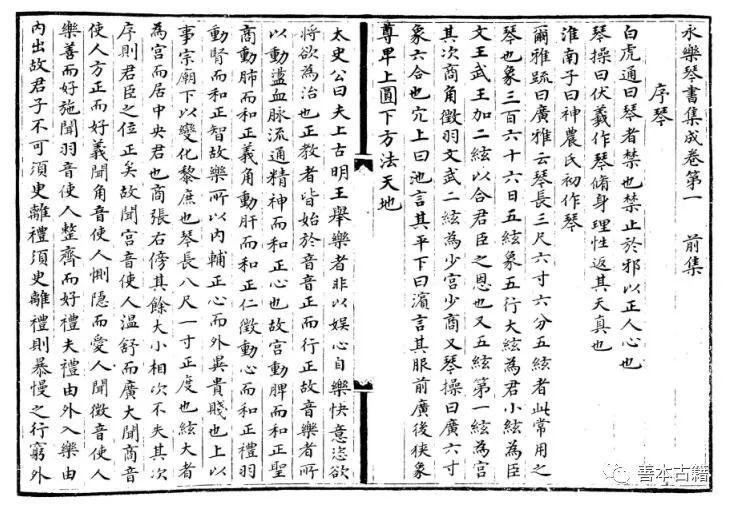 永樂琴書集成卷第一　前集
序琴
白虎通曰琴者禁也禁止於邪以正人心也
琴操曰伏羲作琴脩身理性返其天真也
淮南子曰神農氏初作琴
爾雅疏曰廣雅云琴長三尺六寸六分五絃者此常用之
琴也象三百六十六日五絃象五行大絃為君小絃為臣
文王武王加二絃以合君臣之恩也又五絃第一絃為宮
其次商角徵羽文武二絃為少宮少商又琴操曰廣六寸
象六合也宂上曰池言其平下曰濱言其服前廣後狹象
尊卑上圓下方法天地
太史公曰夫上古明王舉樂者非以娛心自樂快意恣欲
將欲為治也正教者皆始於音音正而行正故音樂者所
以動盪血脈流通精神而和正心也故宮動脾而和正聖
商動肺而和正義角動肝而和正仁徵動心而和正禮羽
動腎而和正智故樂所以內輔正心而外異貴賤也上以
事宗廟下以變化黎庶也琴長八尺一寸正度也絃大者
為宮而居中央君也商張右傍其餘大小相次不失其次
序則君臣之位正矣故聞宮音使人溫舒而廣大聞商音
使人方正而好義聞角音使人惻隱而愛人聞徵音使人
樂善而好施聞羽音使人整齊而好禮夫禮由外入樂由
內出故君子不可須臾離禮須臾離禮則暴慢之行窮外
善本古籍